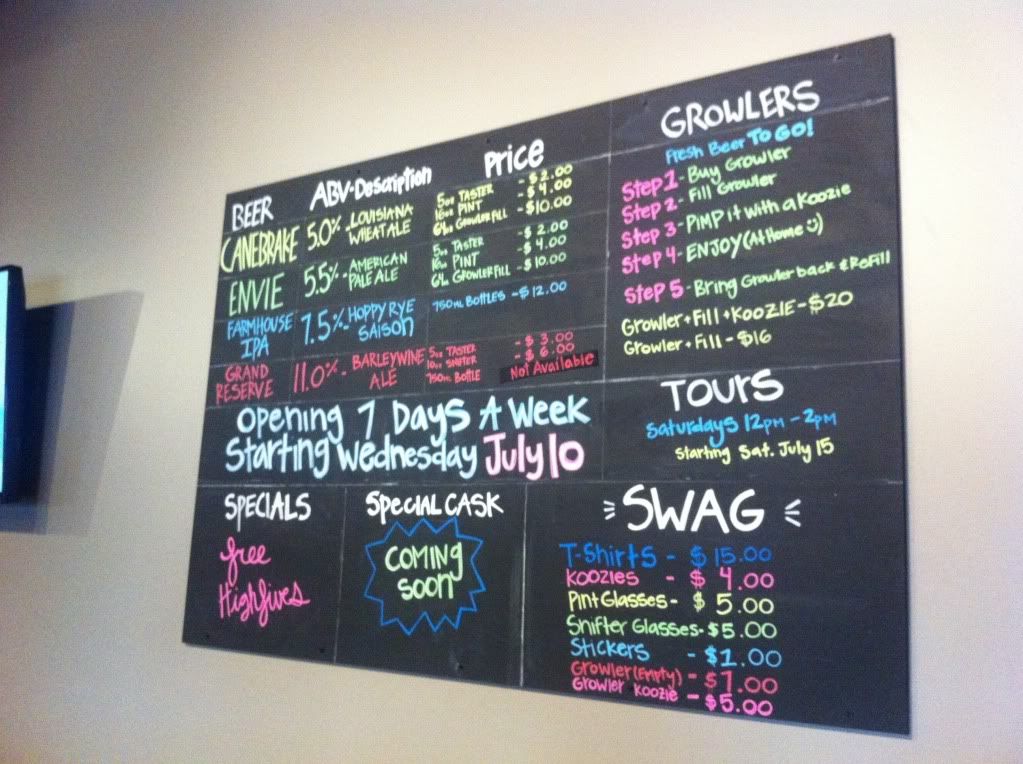 BEER
ABV-Description
Price
CANEBRAKE
5.0% - LOUISIANA
WHEAT ALE
5oz TASTER - $2.00
16oz PINT - $4.00
64oz GROWLER FILL - $10.00
ENVIE
5.5% - AMERICAN
PALE ALE
5oz TASTER - $2.00
16oz PINT - $4.00
64oz GROWLER FILL - $10.00
FARMHOUSE
IPA
7.5% - HOPPY RYE
SAISON
750ML BOTTLES - $12.00
GRAND
RESERVE
11.0% - BARLEYWINE
ALE
5oz TASTER - $3.00
10oz SNIFTER - $6.00
750ML BOTTLE Not Available
Opening 7 Days A Week
Starting Wednesday July 10
GROWLERS
Fresh Beer To GO!
Step 1 - Buy Growler
Step 2 - Fill Growler
Step 3 - Pimp it with a Koozie
Step 4 - ENJOY (At Home :)
Step 5 - Bring Growler back & Refill
Growler + Fill + KOOZIE - $20
Growler + Fill - $16
TOURS
Saturdays 12PM - 2PM
Starting Sat. July 15
SPECIALS
free
Highfives
Special CASK
COMING
Soon
SWAG
T-Shirts - $15.00
Koozies - $4.00
Pint Glasses - $5.00
Snifter Glasses - $5.00
Stickers - $1.00
Growler (Empty) - $7.00
Growler Koozie - $5.00